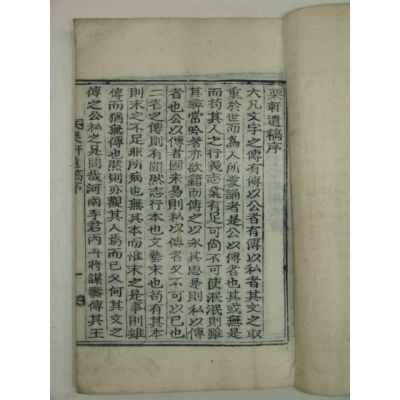 栗軒遺稿序
大凡文字之傳有傳以公者有傳以私者其文之取
重於世而爲人所愛誦者是公以傳者也其或無是
而苟其人之行義志業有足可尙不可使泯泯則雖
其尋常吟著亦欲籍而傳之以永其思是則私以傳
者也公以傳者固未易則私以傳者又不可以已也
二者之傳則有間然志行本也文藝末也苟有其本
則末之不足非所病也無其本而惟末之是事則雖
傳而猶無傳也然則亦觀其人焉而已又何其文之
傳之公私之是問哉河南李君丙斗將謀壽傳其王
軒遺稿序 一